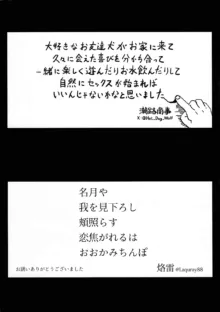 大好きなお友達犬がお家に来て
久々に会えた喜びを分かち合って
一緒に楽しく遊んだりお水飲んだりして
自然にセックスが始まれば
いいんじゃないかなと思いました
潮路南事
X:@Hot_Dog_Mof
名月や
我を見下ろし
頬照らす
恋焦がれるは
おおかみちんぽ
お誘いありがとうございました
烙雷 @Laquray88